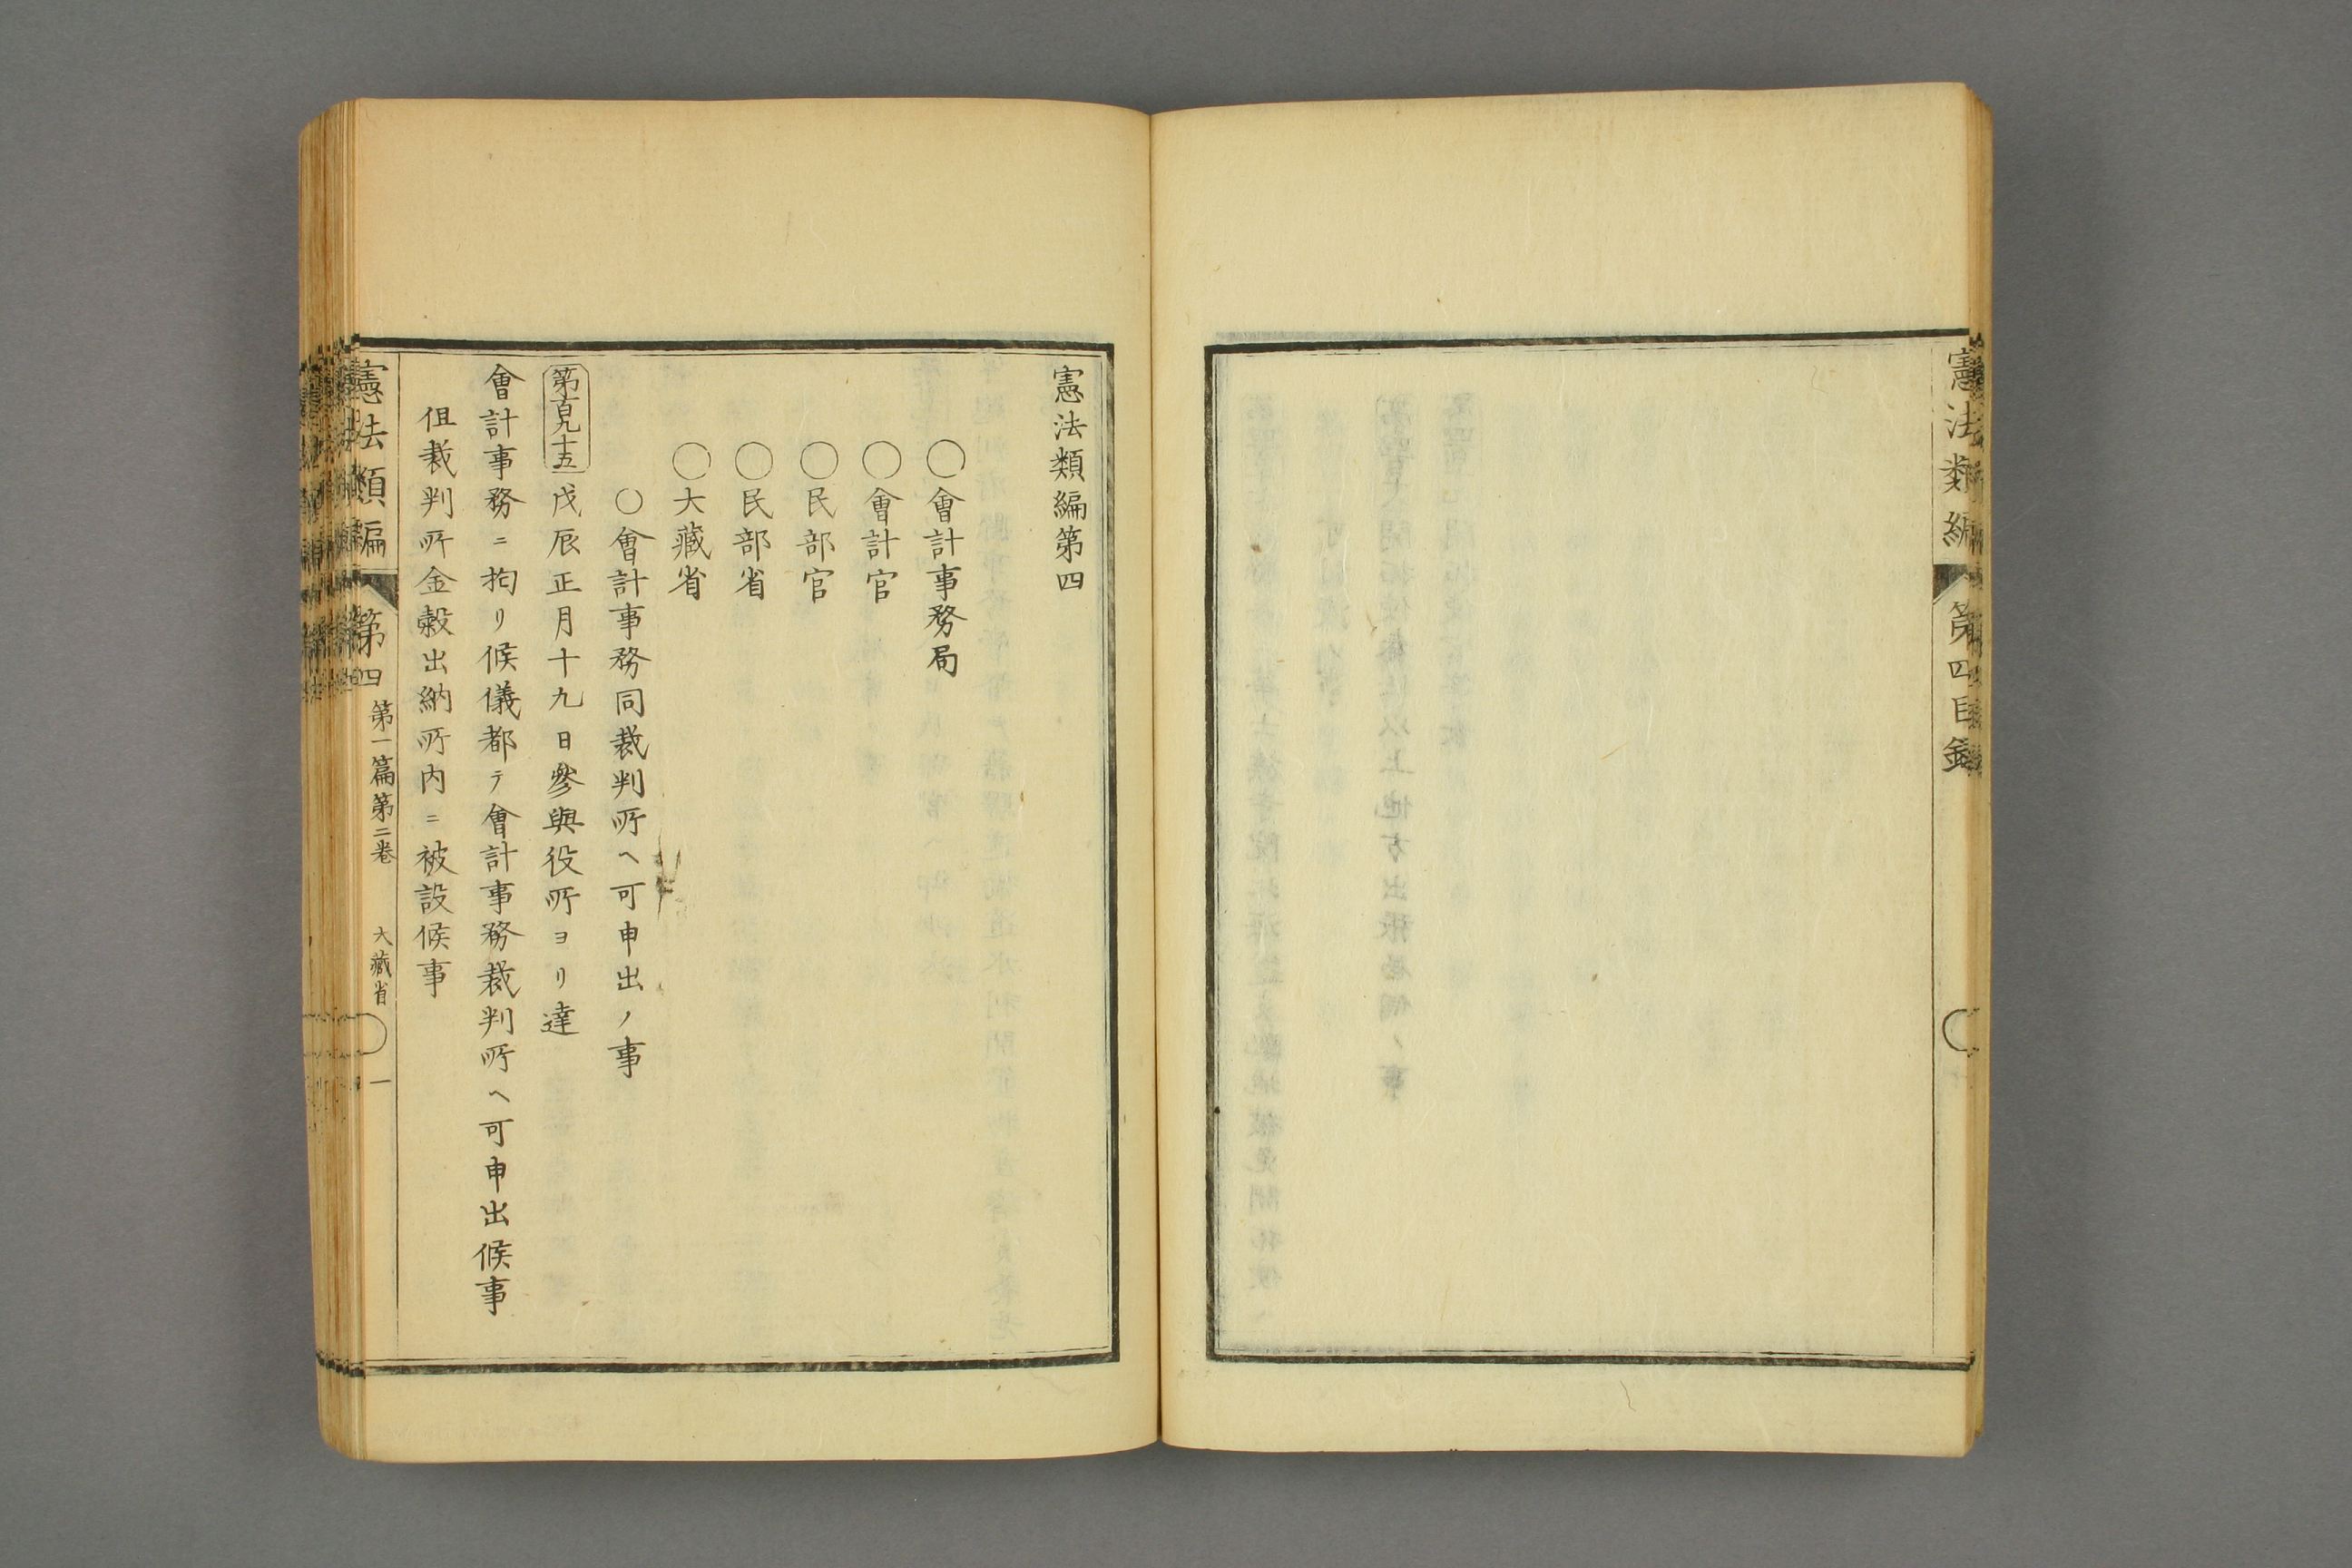 憲法類編
第四目録
憲法類編第四
〇會計事務局
〇會計官
〇民部官
〇民部省
〇大藏省
〇會計事務同裁判所ヘ可申出ノ事
第百九十五 戊辰正月十九日參與役所ヨリ達
會計事務ニ拘リ候儀都テ會計事務裁判所ヘ可申出候事
但裁判所金穀出納所内ニ被設候事
憲法類編
第四
第一篇第二卷
大藏省
一